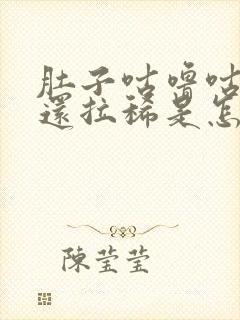 肚子咕嚕咕
還拉稀是怎
陳莹莹